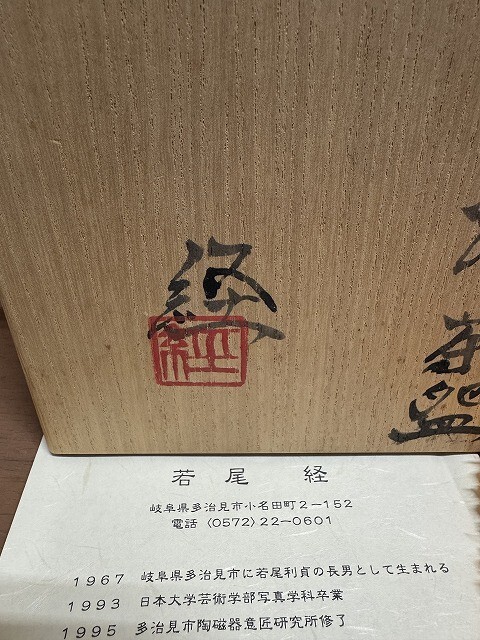 経
経
若尾 経
岐阜県多治見市小名田町2-152
電話〈0572〉22-0601
1967 岐阜県多治見市に若尾利貞の長男として生まれる
1993 日本大学芸術学部写真学科卒業
1995 多治見市陶磁器意匠研究所修了